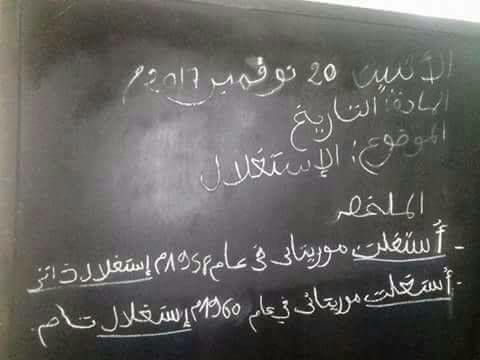 الأثنين 20 نوفمبر 2017م
المادة: التاريخ
الموضوع: الإستغلال
الملخص
- أستغلت موريتاني في عام 1958م إستغلال ذاتي
- أستغلت موريتاني في عام 1960م إستغلال تام.